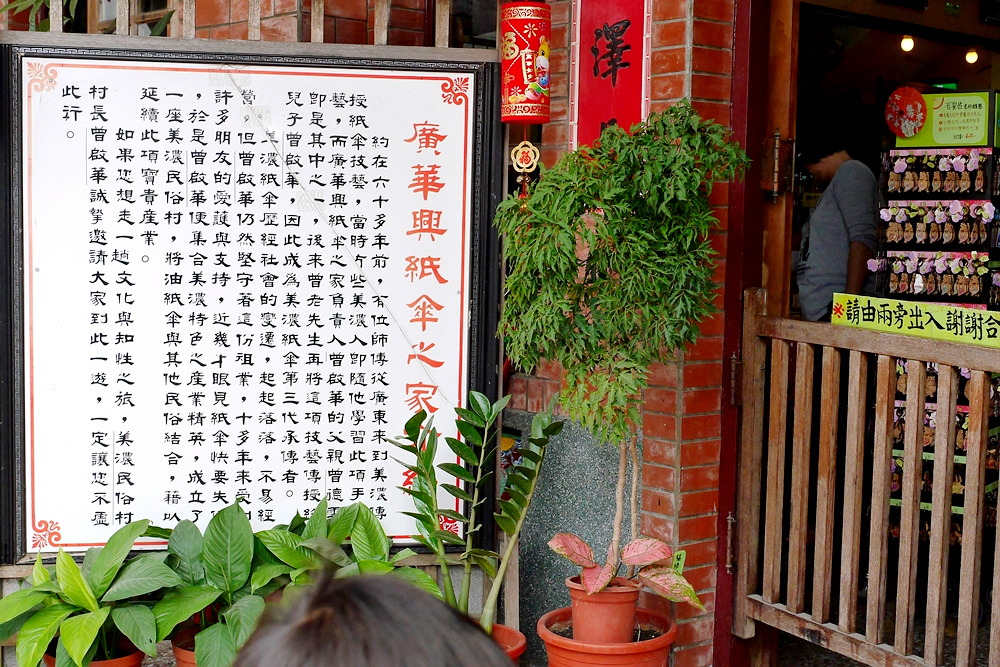 廣華興紙傘之家
約在六十多年前,有位師傅從廣東來到美濃傳
授紙傘技藝,當時有些美濃人即隨他學習此項手
藝,而廣華興紙傘之家負責人曾啟華的父親曾德
即是其中之一,後來曾老先生再將這項技藝傳授給
兒子曾啟華,因此成為美濃紙傘第三代承傳者。
美濃紙傘歷經社會的變遷,起起落落,不易經
當,但曾啟華仍然堅守著這份祖業,十多年來受
許多朋友的愛護與支持,近幾年眼見紙傘快要失
,於是曾啟華便集合美濃特色之產業精英,成立了
一座美濃民俗村,將油紙傘與其他民俗結合,藉以
延續此項寶貴產業。
如果您想走一趟文化與知性之旅,美濃民俗村
村長曾啟華誠摯邀請大家到此一遊,一定讓您不虛
此行。
福
澤
※請由兩旁出入謝謝合